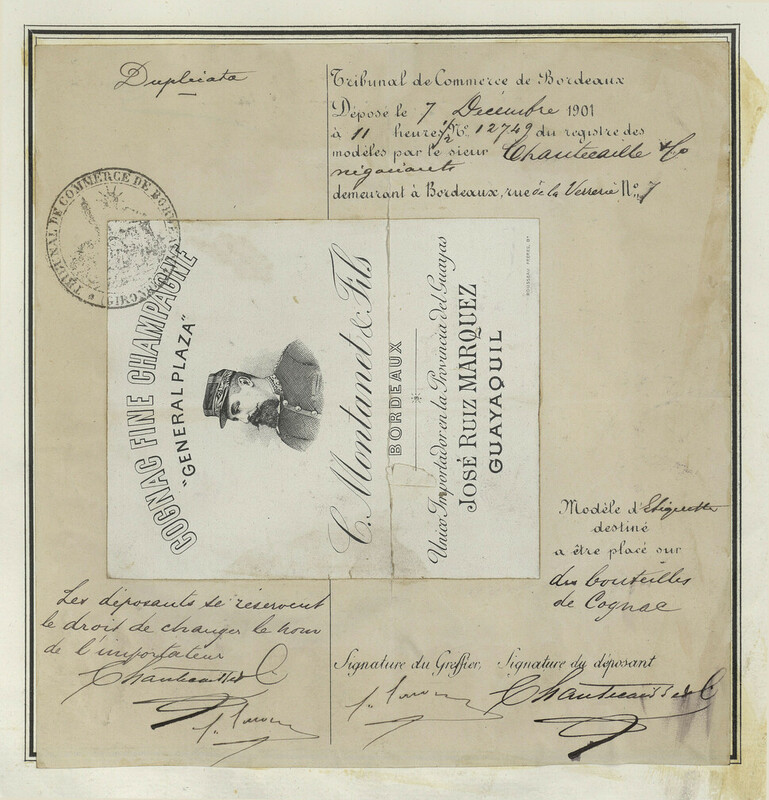 Duplicata
Tribunal de Commerce de Bordeaux
Déposé le 7 Décembre 1901
à 11 heures 1/2 No 12749 du registre des
modèles par le sieur Chantecaille & Co
négociants
demeurant à Bordeaux, rue de la Verrerie No 7
TRIBUNAL DE COMMERCE DE BORDEAUX
(GIRONDE)
COGNAC FINE CHAMPAGNE
"GENERAL PLAZA"
C. Montanet & Fils
BORDEAUX
Unico Importador en la Provincia del Guayas
JOSÉ RUIZ MARQUEZ
GUAYAQUIL
Modèle d'Etiquette
destiné
a être placé sur
des bouteilles
de Cognac
Les déposants se réservent
le droit de changer le nom
de l'importateur
Signature du Greffier, Signature du déposant